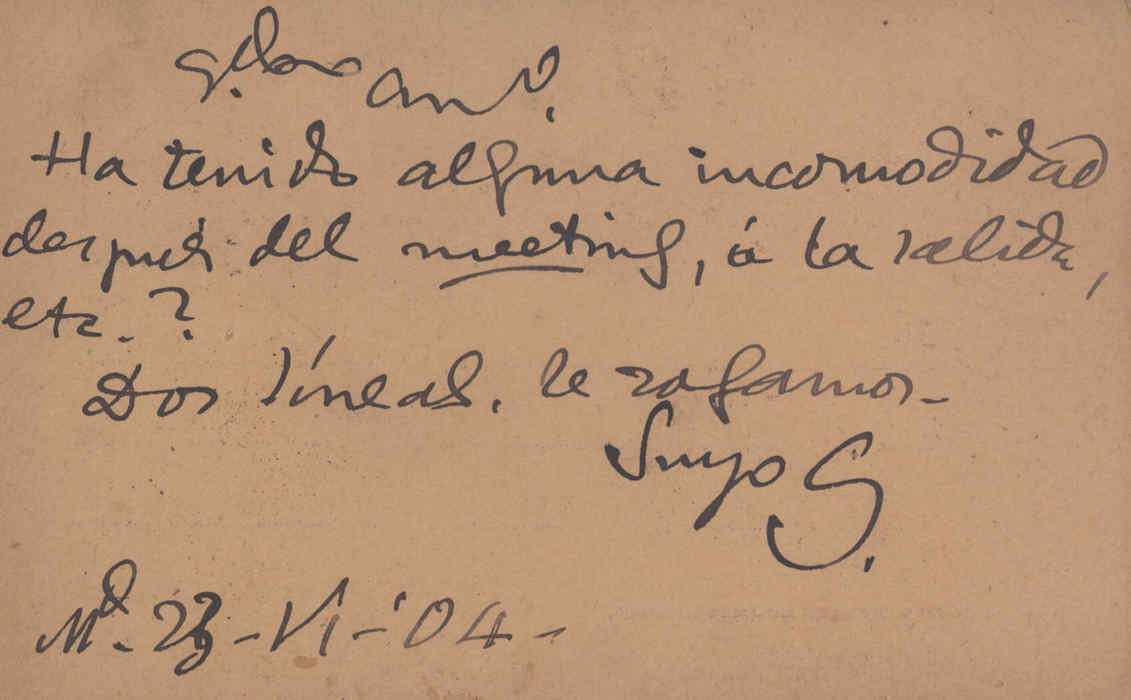 Ha tenido alguna incomodidad
después del meeting, á la salida,
etc.?
Dos líneas. le rogamos.-
Suyo G.
Md. 23-VI-'04-